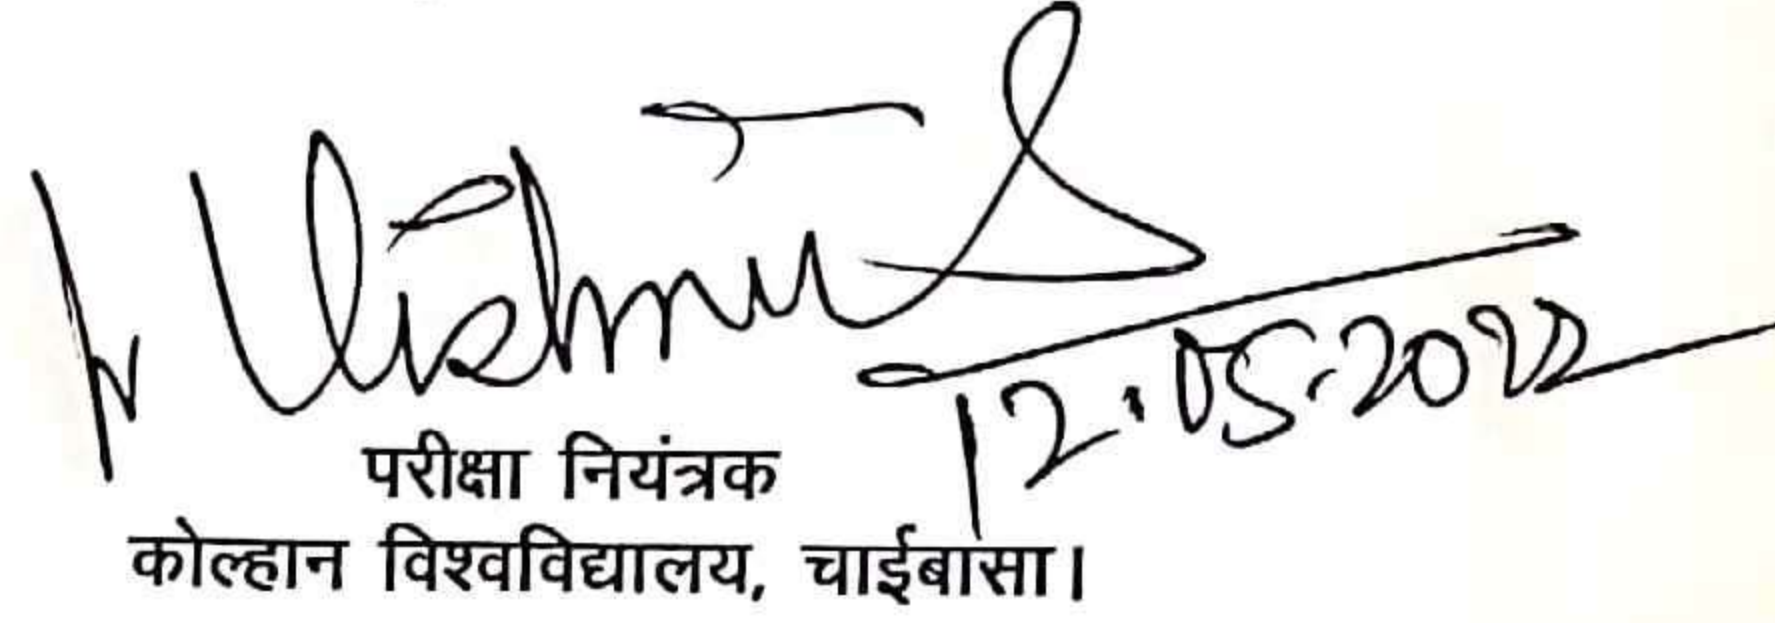 12.05.2022
परीक्षा नियंत्रक
कोल्हान विश्वविद्यालय, चाईबासा।